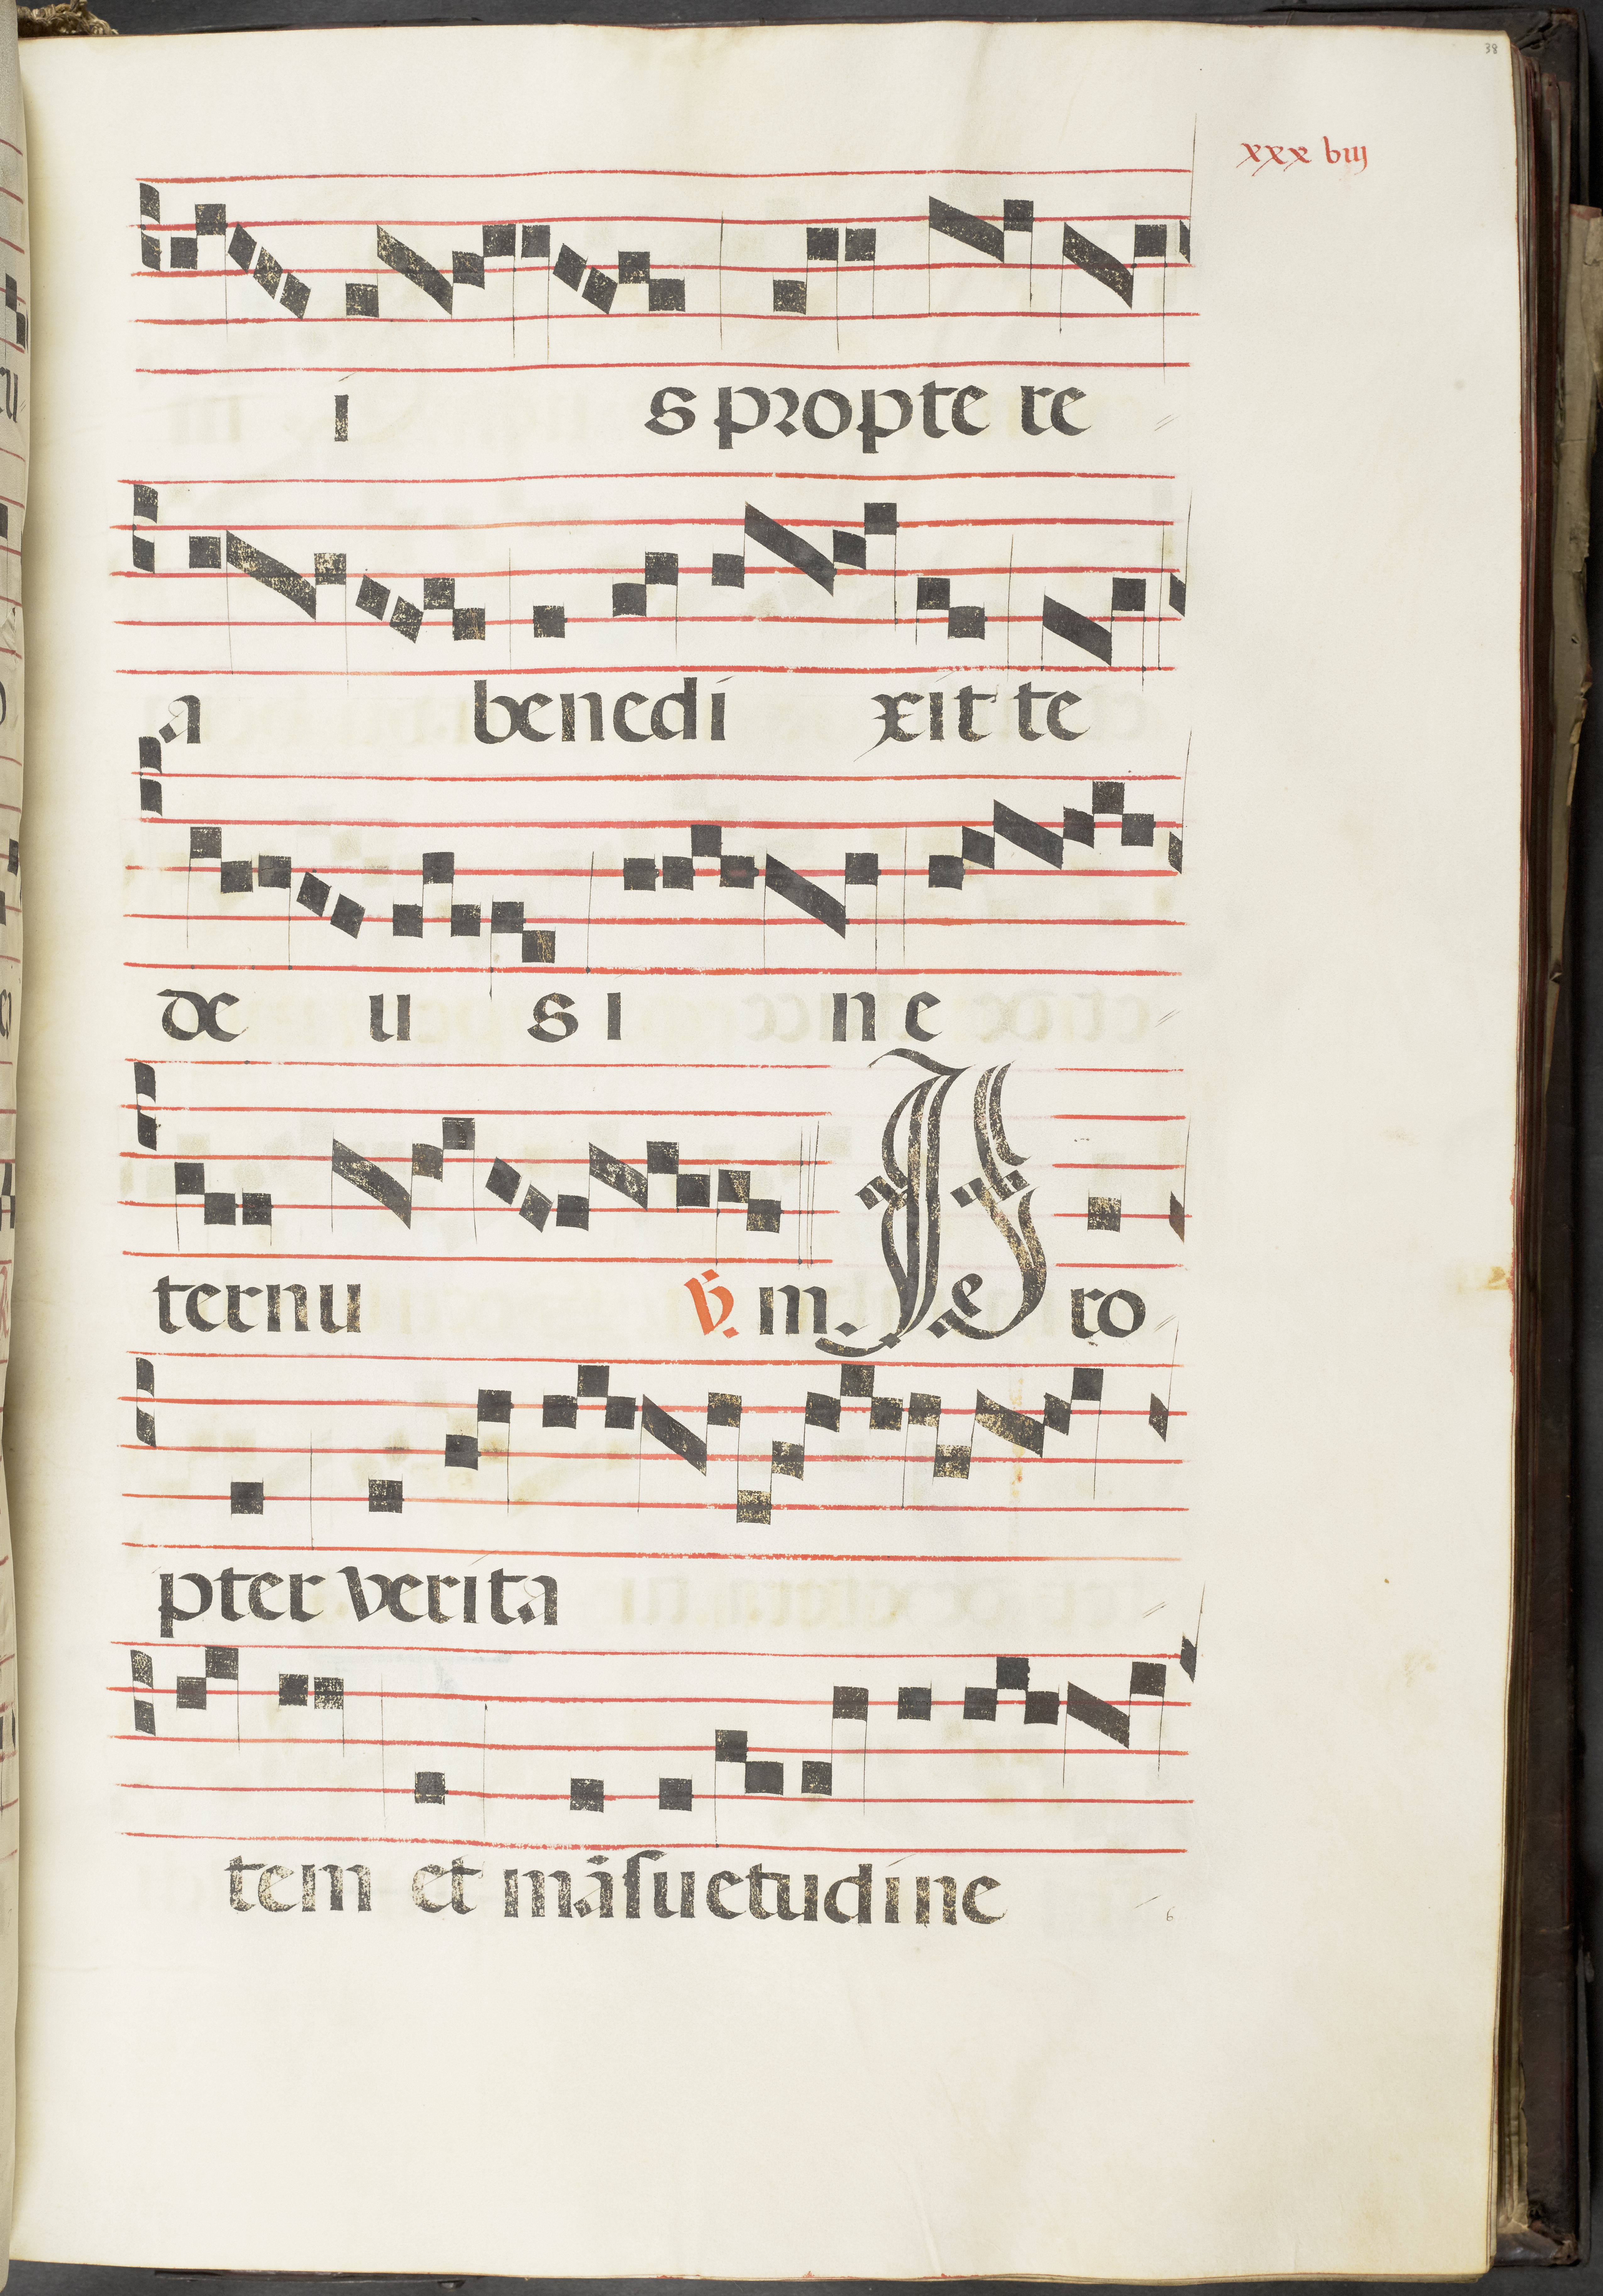 38
xxx biij
i s propte re
a benedi xit te
de u s i ne
ternu ℣. m. Pro
pter verita
tem et māsuetudine
6